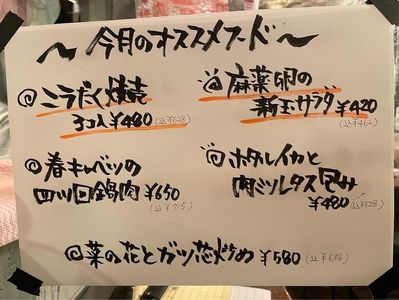 〜今月のオススメフード〜
◎ニラだく焼売
3コ入 ¥480(込¥528)
◎麻薬卵の
新玉サラダ¥420
(込¥462)
◎春キャベツの
四川回鍋肉 ¥650
(込¥715)
◎ホタルイカと
肉ミソレタス包み
¥480(込¥528)
◎菜の花とガツ芯炒め ¥580(込¥638)